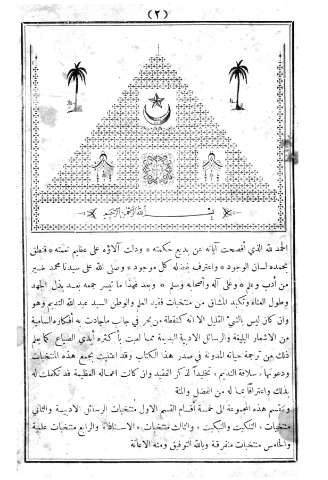 (٢)
بسم الله الرحمن الرحيم
الحمد لله الذي أفصحت آياته عن بديع حكمته * ودلت آلاؤه على عظيم نعمته * فنطق
بحمده لسان الوجود * واعترف بفضله كل موجود * وصلى الله على سيدنا محمد خير
من أدب وعلم * وعلى آله وأصحابه وسلم * وبعد فهذا ما تيسر جمعه بعد بذل الجهد
وطول العناء وتكبد المشاق من منتخبات فقيد العلم والوطن السيد عبد الله النديم وهو
وان كان ليس بالشيء القليل الا انه كنقطة من بحر في جانب ماجادت به أفكاره السامية
من الاشعار البليغة والرسائل الادبية البديعة مما لعبت بأكثره أيدي الضياع كما يعلم
ذلك من ترجمة حياته المدونة في صدر هذا الكتاب وقد اعتنيت بجمع هذه المنتخبات
ودعوتها، سلافة النديم، تخليداً لذكر الفقيد وان كانت اعماله العظيمة قد تكفلت له
بذلك واعترافا بما له من الفضل والمنة
وتنقسم هذه المجموعة الى خمسة أقسام القسم الاول منتخبات الرسائل الادبية والثاني
منتخبات، التنكيت والتبكيت، والثالث منتخبات، الاستاذ، والرابع منتخبات علمية
والخامس منتخبات متفرقة وبالله التوفيق ومنه الاعانة